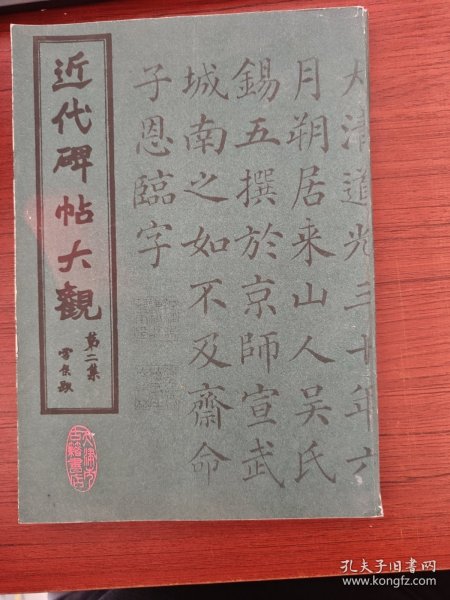 近代碑帖大觀
第二集
大清道光三十年六
月朔居来山人吴氏
錫五撰於京師宣武
城南之如不及齋命
子恩臨字
天津市
古籍書店
孔夫子旧书网
www.kongfz.com